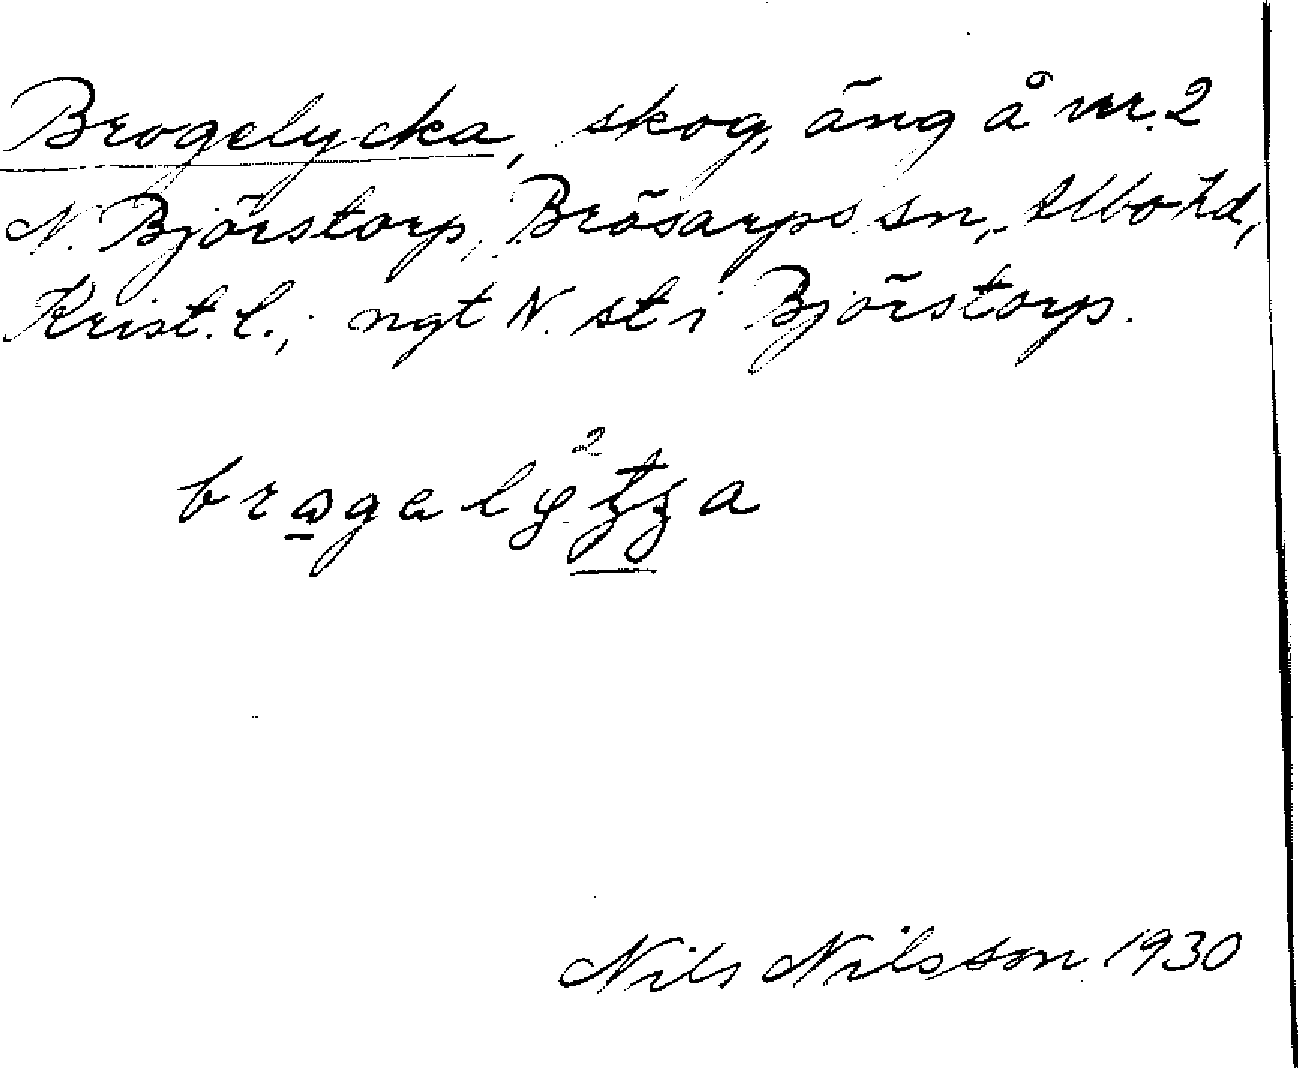 Brogelycka, skog, äng å nr. 2
N. Björstorp, Brösarps sn, Albo hd,
Krist. l.; ngt N. st i Björstorp.
Nils Nilsson 1930